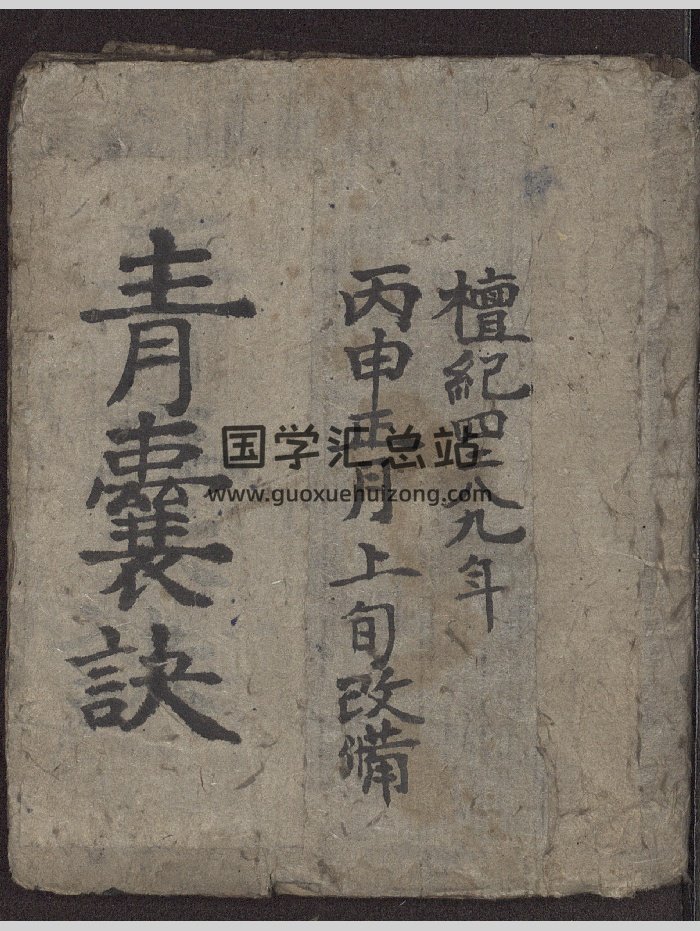 檀紀四二八九年
丙申正月上旬改備
青囊訣
国学汇总站
www.guoxuehuizong.com